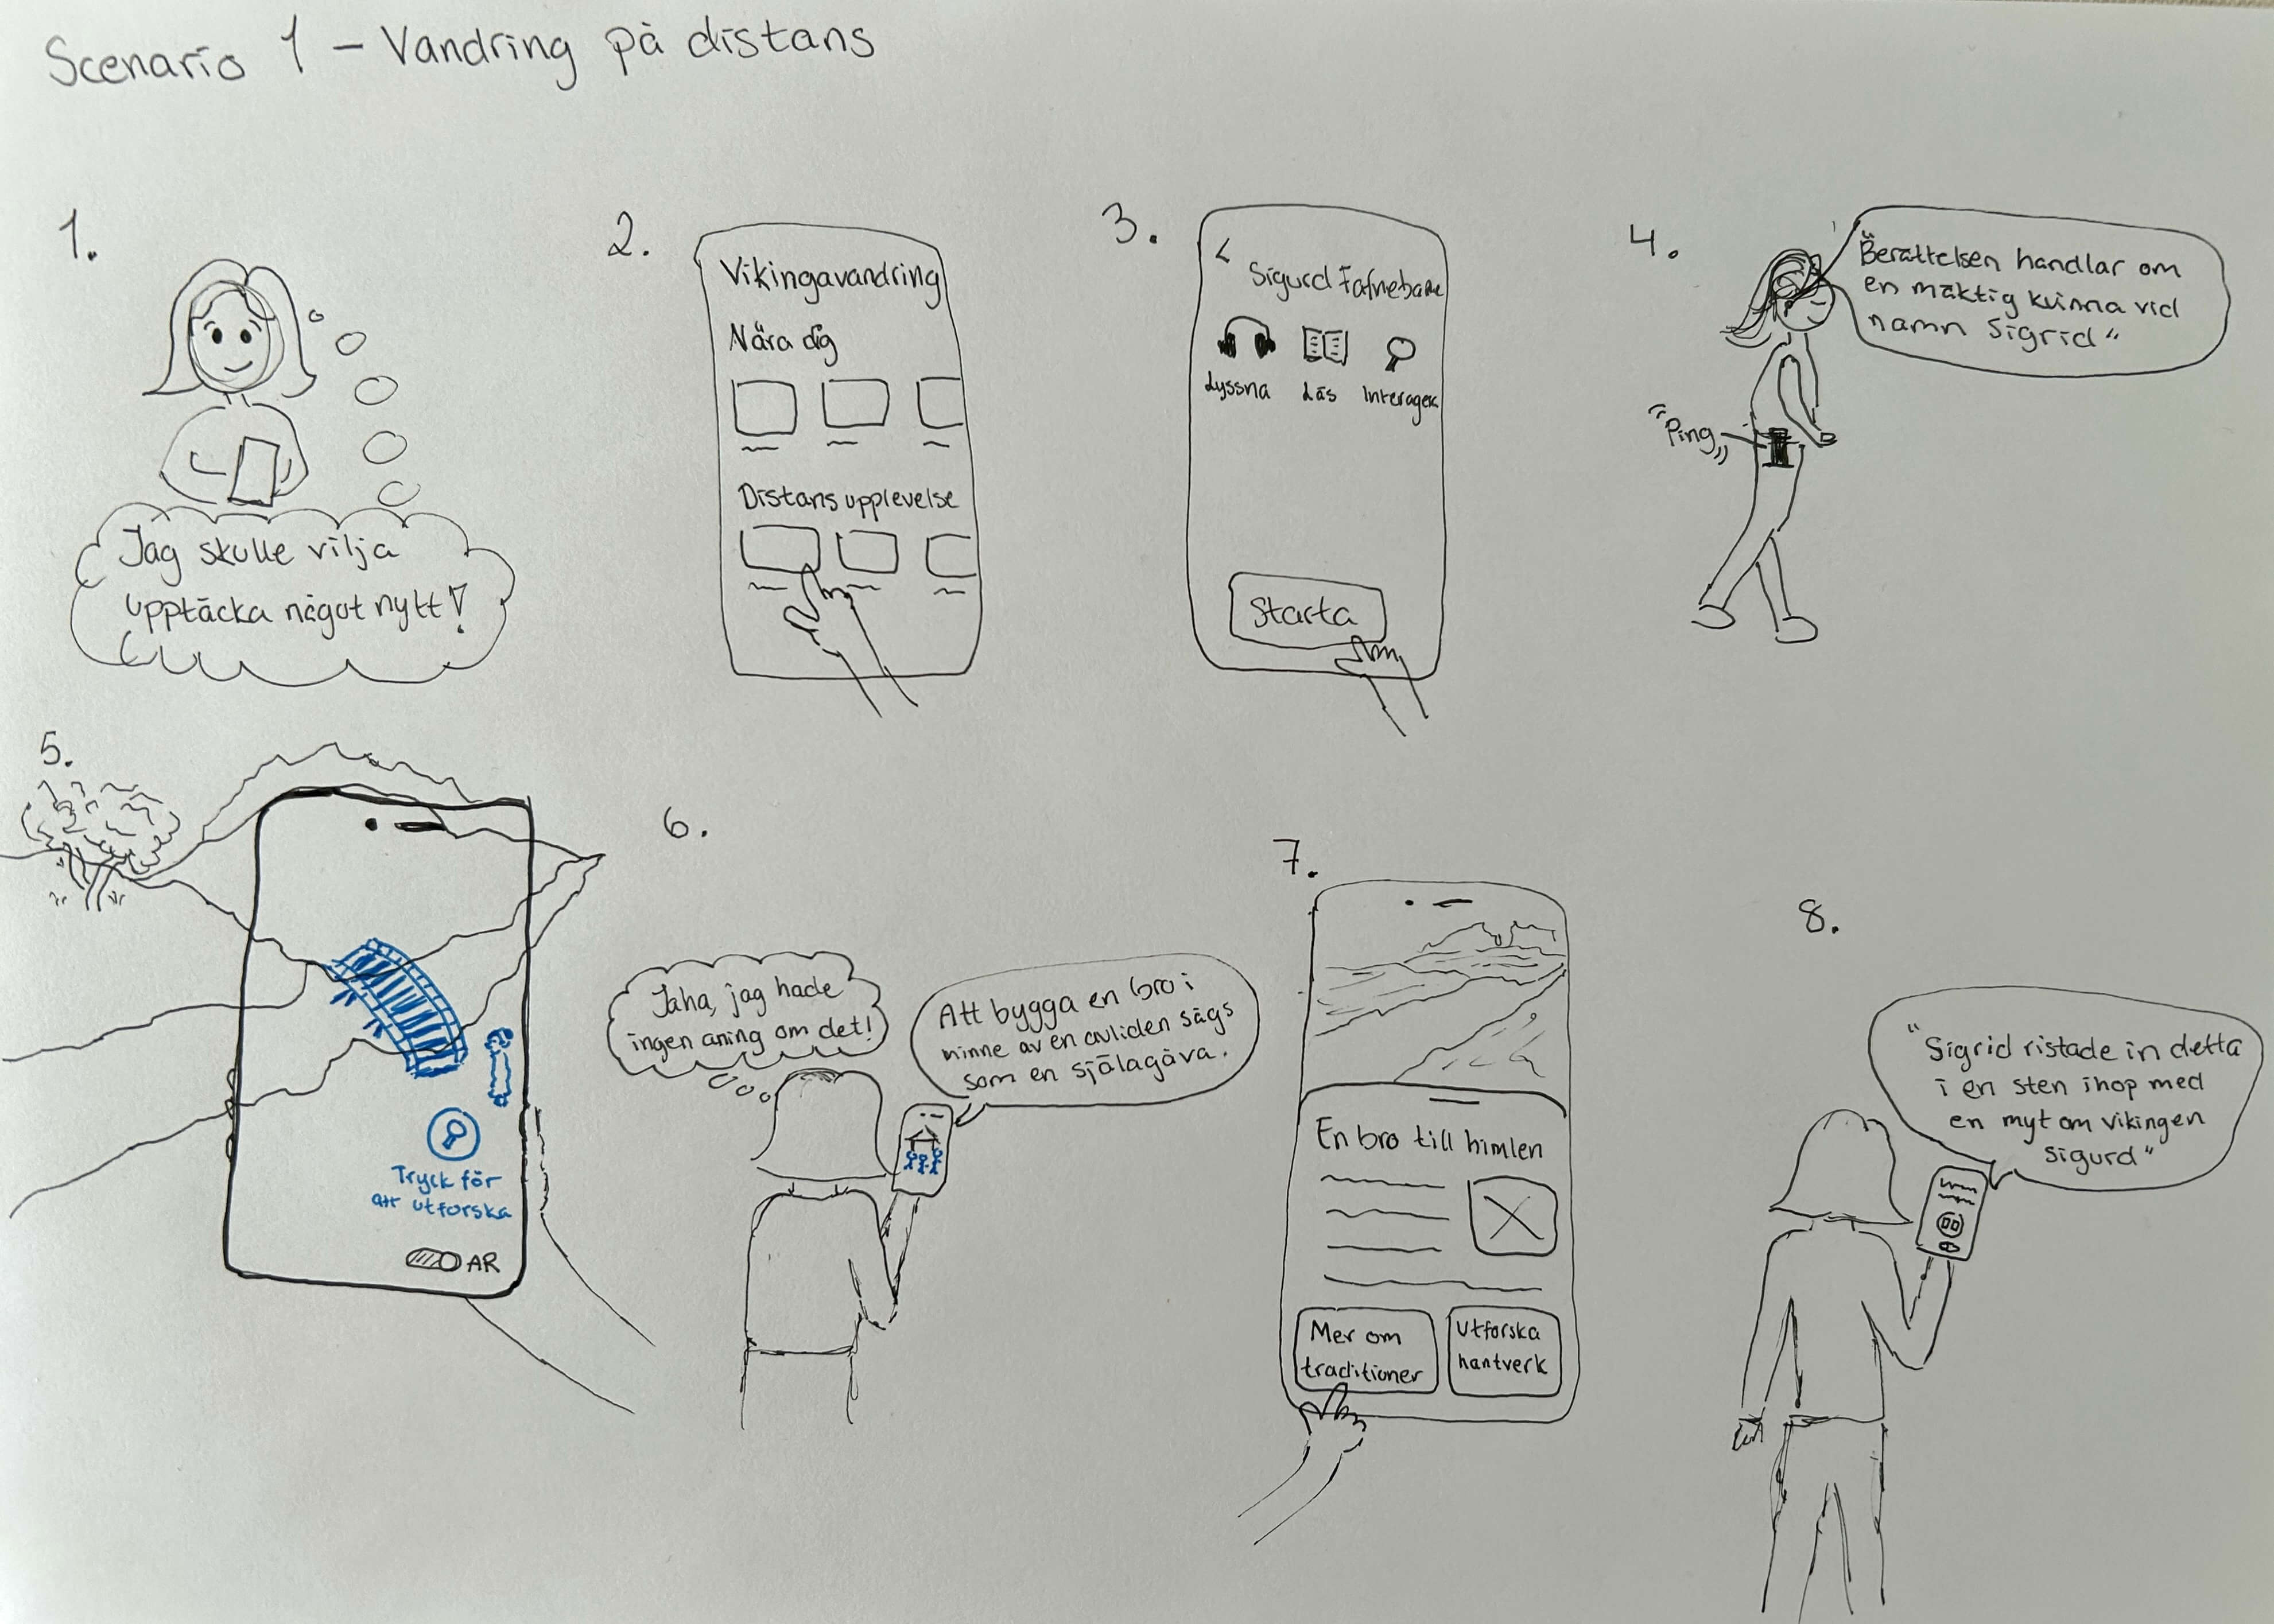 Scenario 1 – Vandring på distans
1.
Jag skulle vilja
upptäcka något nytt!
2.
Vikingavandring
Nära dig
Distans upplevelse
3.
<
Sigurd Fafnebane
Lyssna
Läs
Interagera
Starta
4.
"Berättelsen handlar om
en mäktig kvinna vid
namn Sigrid"
Ping
5.
Tryck för
att utforska
AR
6.
Jaha, jag hade
ingen aning om det!
Att bygga en bro i
minne av en avliden sägs
som en själagåva.
7.
En bro till himlen
Mer om
traditioner
Utforska
hantverk
8.
"Sigrid ristade in detta
i en sten ihop med
en myt om vikingen
Sigurd"